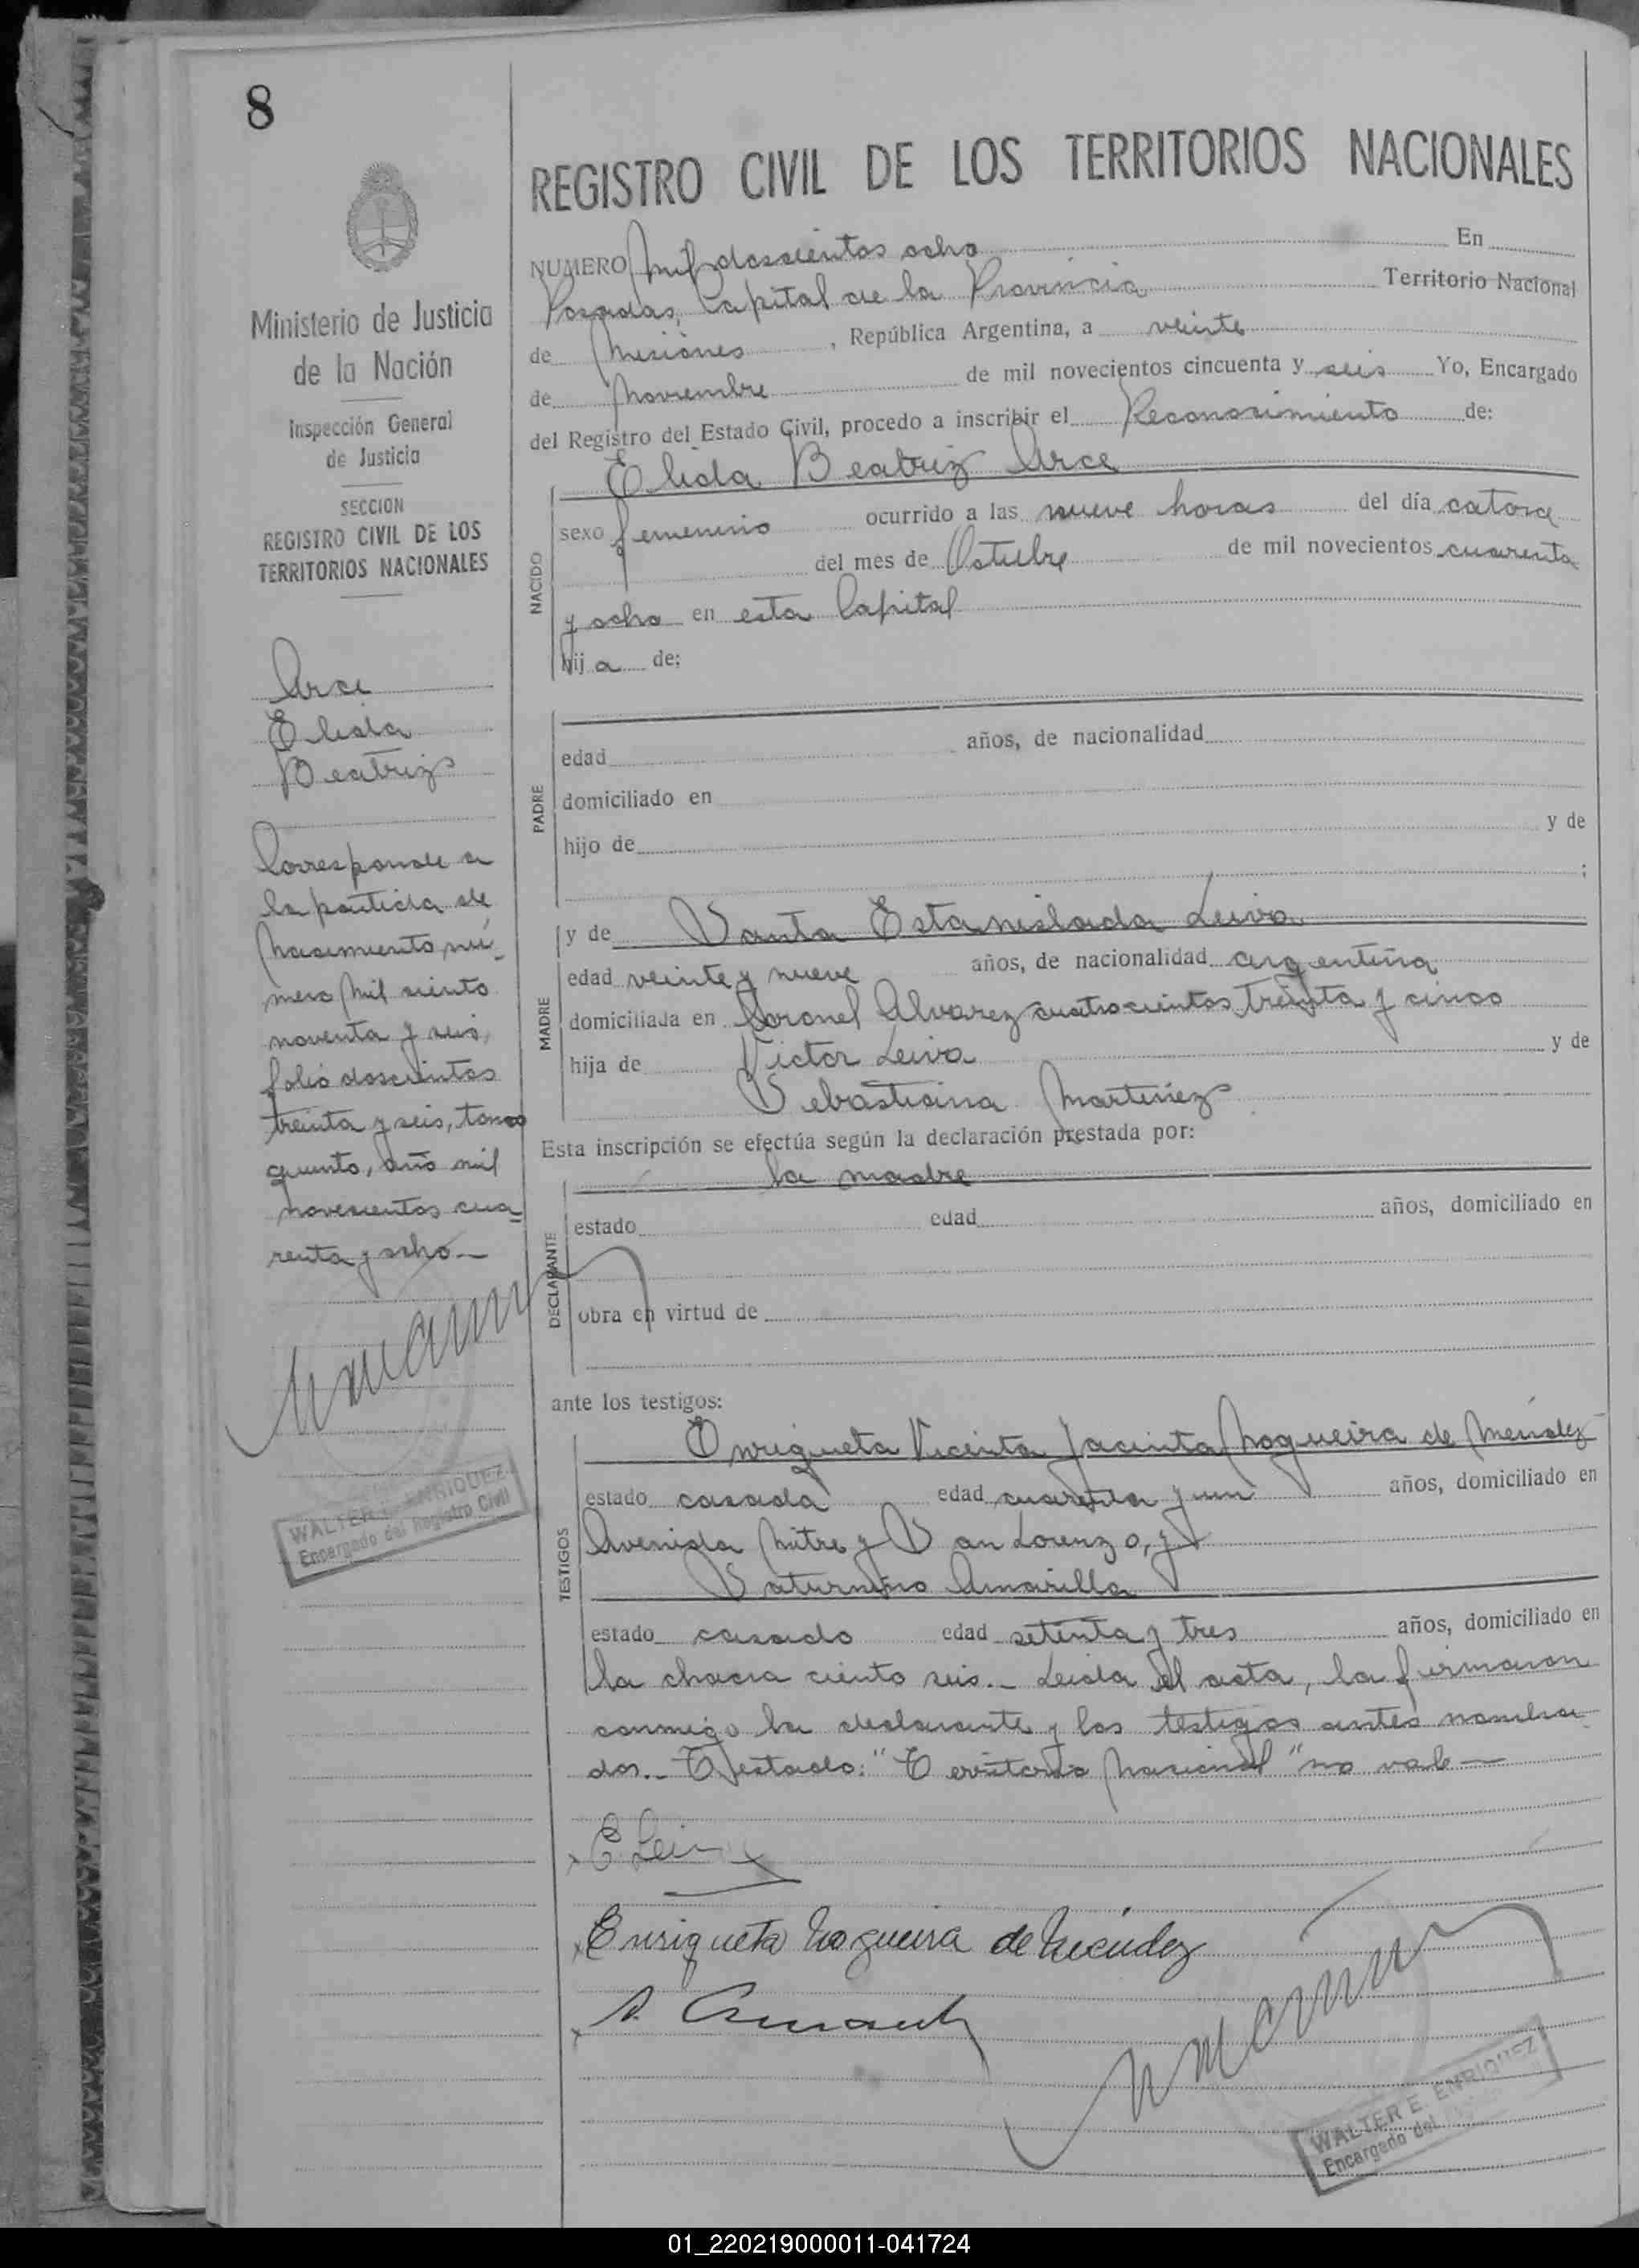 8
REGISTRO CIVIL DE LOS TERRITORIOS NACIONALES
Ministerio de Justicia
de la Nación
Inspección General
de Justicia
SECCION
REGISTRO CIVIL DE LOS
TERRITORIOS NACIONALES
Arce
Elida
Beatriz
Corresponde a
la partida de
Nacimiento nú-
mero mil ciento
noventa y seis,
folio doscientos
treinta y seis, tomo
quinto, año mil
novecientos cua-
renta y ocho.—
WALTER E. ENRIQUEZ
Encargado del Registro Civil
NUMERO Mil doscientos ocho En
Posadas, Capital de la Provincia Territorio Nacional
de Misiones, República Argentina, a veinte
de Noviembre de mil novecientos cincuenta y seis Yo, Encargado
del Registro del Estado Civil, procedo a inscribir el Reconocimiento de:
Elida Beatriz Arce
NACIDO
sexo femenino ocurrido a las nueve horas del día catorce
del mes de Octubre de mil novecientos cuarenta
y ocho en esta Capital
hija de;
PADRE
edad años, de nacionalidad
domiciliado en
hijo de y de
;
MADRE
y de Santa Estanislada Leiva
edad veinte y nueve años, de nacionalidad argentina
domiciliada en Coronel Alvarez cuatrocientos treinta y cinco
hija de Victor Leiva y de
Sebastiana Martinez
Esta inscripción se efectúa según la declaración prestada por:
la madre
DECLARANTE
estado edad años, domiciliado en
obra en virtud de
ante los testigos:
TESTIGOS
Enriqueta Vicenta Jacinta Nogueira de Mendez
estado casada edad cuarenta y un años, domiciliado en
Avenida Mitre y San Lorenzo, y
Saturnino Amarilla
estado casado edad setenta y tres años, domiciliado en
la chacra ciento seis.- Leida el acta, la firmaron
conmigo la declarante y los testigos antes nombra-
dos.- Testado: "Territorio Nacional" no vale—
x E. Leiva
x Enriqueta Nogueira de Méndez
x S. Amarilla
WALTER E. ENRIQUEZ
Encargado del
01_220219000011-041724